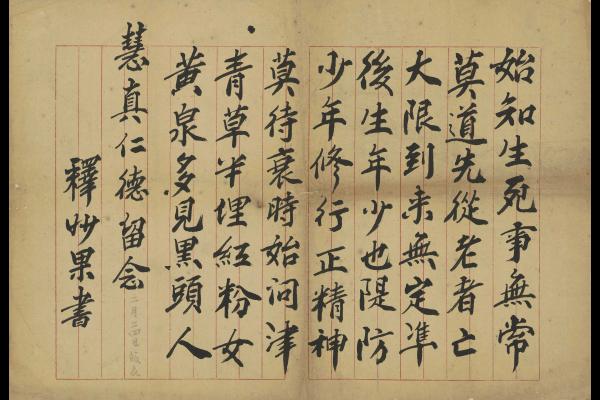 始知生死事無常
莫道先從老者亡
大限到来無定準
後生年少也隄防
少年修行正精神
莫待衰時始问津
青草半埋紅粉女
黃泉多見黑頭人
慧真仁德留念
釋妙果書